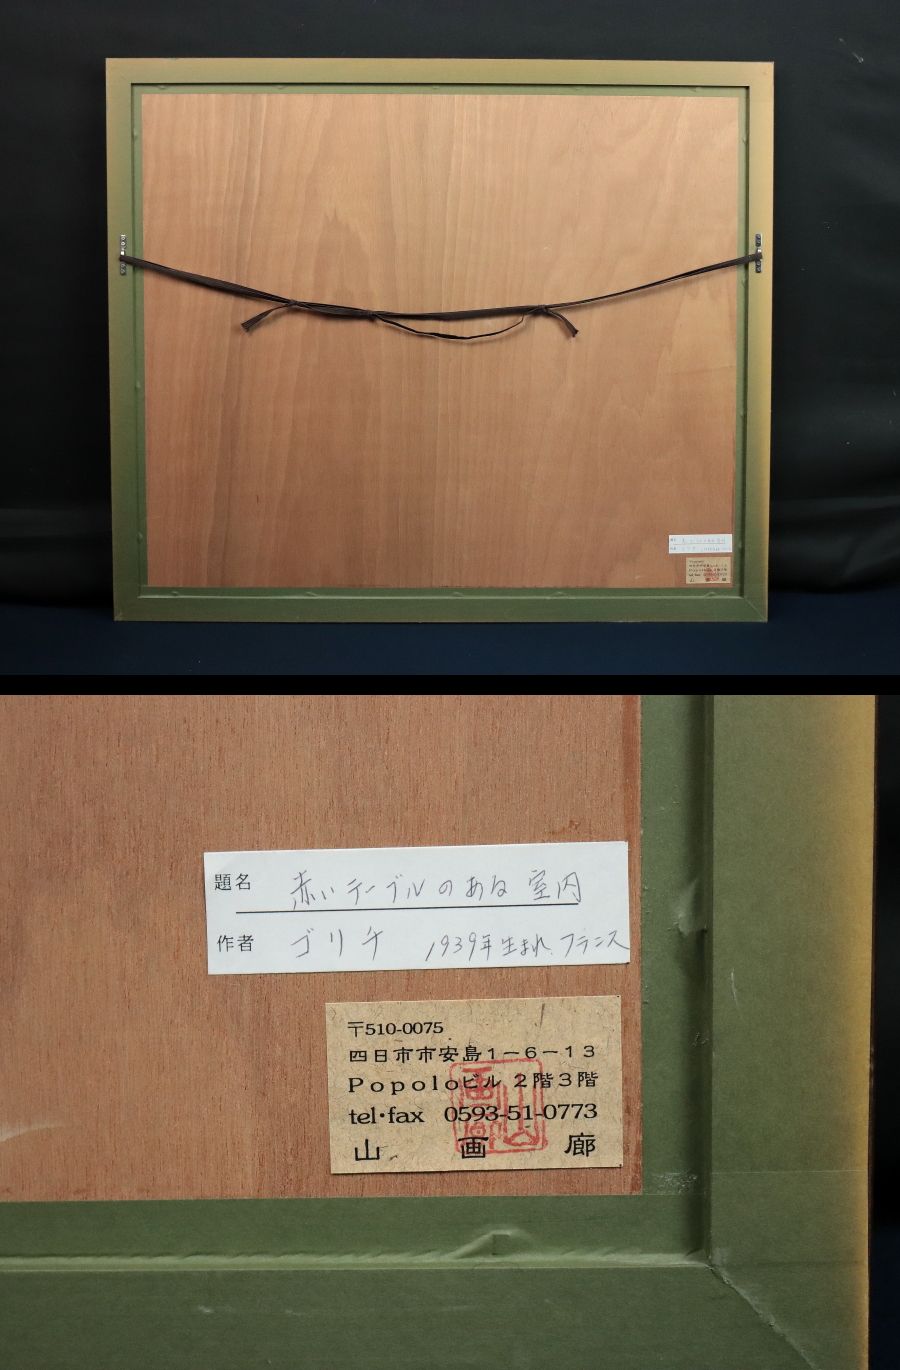 題名 赤いテーブルのある室内
作者 ゴリチ 1939年生まれ. フランス
〒510-0075
四日市市安島1-6-13
Popoloビル 2階3階
tel・fax 0593-51-0773
山画廊